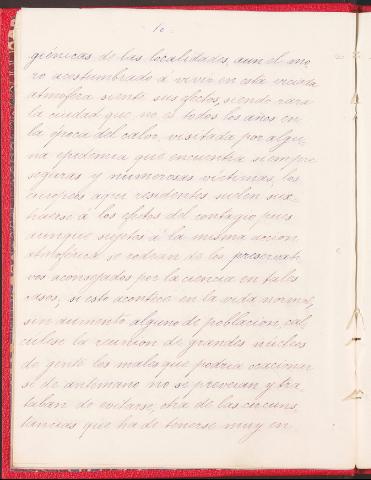 10
giénicas de las localidades, aun el mo
ro acostumbrado á vivir en esta viciada
atmosfera siente sus efectos, siendo rara
la ciudad que no es todos los años en
la época del calor, visitada por algu-
na epidemia que encuentra siempre
seguras y numerosas victimas, los
europeos aqui residentes suelen sus-
traerse á los efectos del contagio pues
aunque sujetos á la misma accion
atmosférica se rodean de los preservati
vos aconsejados por la ciencia en tales
casos, si esto acontece en la vida normal,
sin aumento alguno de poblacion, cal-
culese la reunion de grandes núcleos
de gente los males que podria ocacionar
si de antimano no se preveian y tra
taban de evitarse, otra de las circuns,
tancias que ha de tenerse muy en